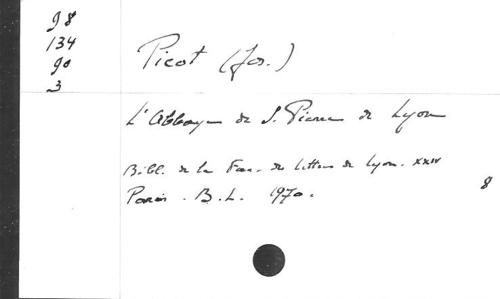 98
134
90
3
Picot (Jos.)
L'Abbaye de S. Pierre de Lyon
Bibl. de la Fac. des lettres de Lyon. XXIV
Paris. B.L. 1970.
8